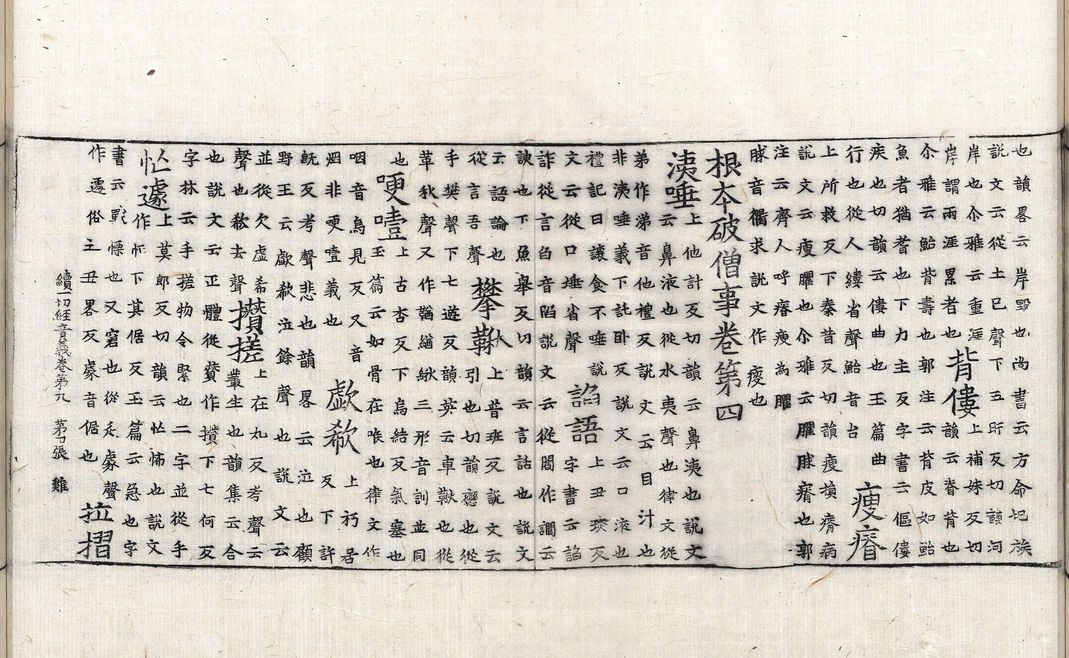 也韻畧云岸毀也尚書云方命圯族
說文云從土已聲下五䏏反切韻河
岸也尒雅云重涯上補妹反切
岸謂兩涯累者也背僂韻云脊背也
尒雅云鮐背壽也郭注云背皮如鮐
魚者猶耇也下力主反字書云傴僂
疾也切韻云僂曲也玉篇曲
行也從人縷省聲鮐音台瘦瘠
上所救反下秦昔反切韻瘦損瘠病
說文云瘦臞也尒雅云臞脙瘠也郭
注云齊人呼瘠瘦為臞
脙音衢求說文作㾞也
根本破僧事卷第四
洟唾上他計反切韻云鼻洟也說文
云鼻液也從水夷聲也律文從
弟作涕音他禮反說文云目汁也
非洟唾義下託臥反說文云口液也
禮記曰讓食不唾說
文云從口埀省聲諂語上丑琰反
字書云諂
詐從言臽音陷說文云從閻作讇云
諛也下魚舉反切韻云言話也說文
云語論也上普班反說文云
從言吾聲攀鞦引也切韻戀也從
手樊聲下七遊反韻英云車鞦也從
革秋聲又作鞧緧緻三形音訓並同
也哽噎上古杏反下烏結反氣塞也
玉篇云如骨在喉也律文作
咽音烏見反又音
烟非哽噎義也歔欷上朽居
反下許
旣反考聲悲也韻畧云泣也顧
野王云歔欷泣餘聲也說文云
並從欠虛希上在九反考聲云
聲也欷去聲攢搓叢生也韻集云合
也說文云正體從贊作攢下七何反
字林云手搓物令緊也二字並從手
忙遽上莫郎反切韻云忙怖也說文
作㤀下其倨反玉篇云急也字
書云戰慄也又窘也從辵豦聲
作遽俗主丑畧反豦音倨也拉摺
續一切經音義卷第九 第丁張 雞